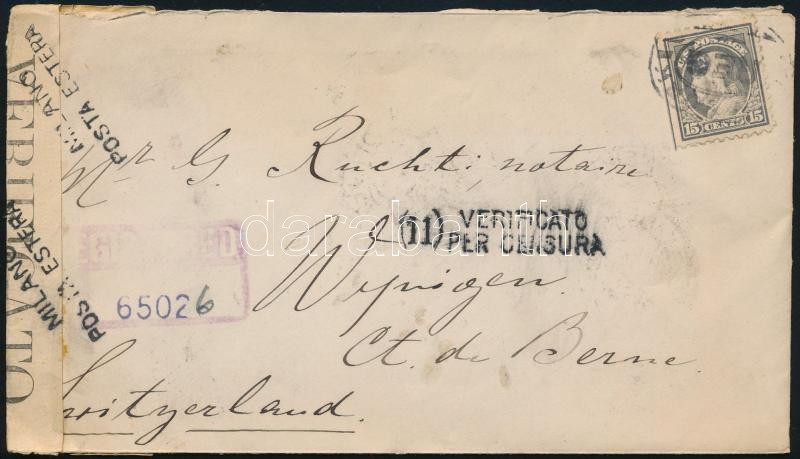 U.S. POSTAGE
15 CENTS 15
MILANO
POSTA ESTERA
MILANO
POSTA ESTERA
VERIFICATO
Mr G. Ruchti, notaire
(11) VERIFICATO
PER CENSURA
REGISTERED
65026
Wynigen.
Ct. de Berne.
Switzerland.
darabanth.com